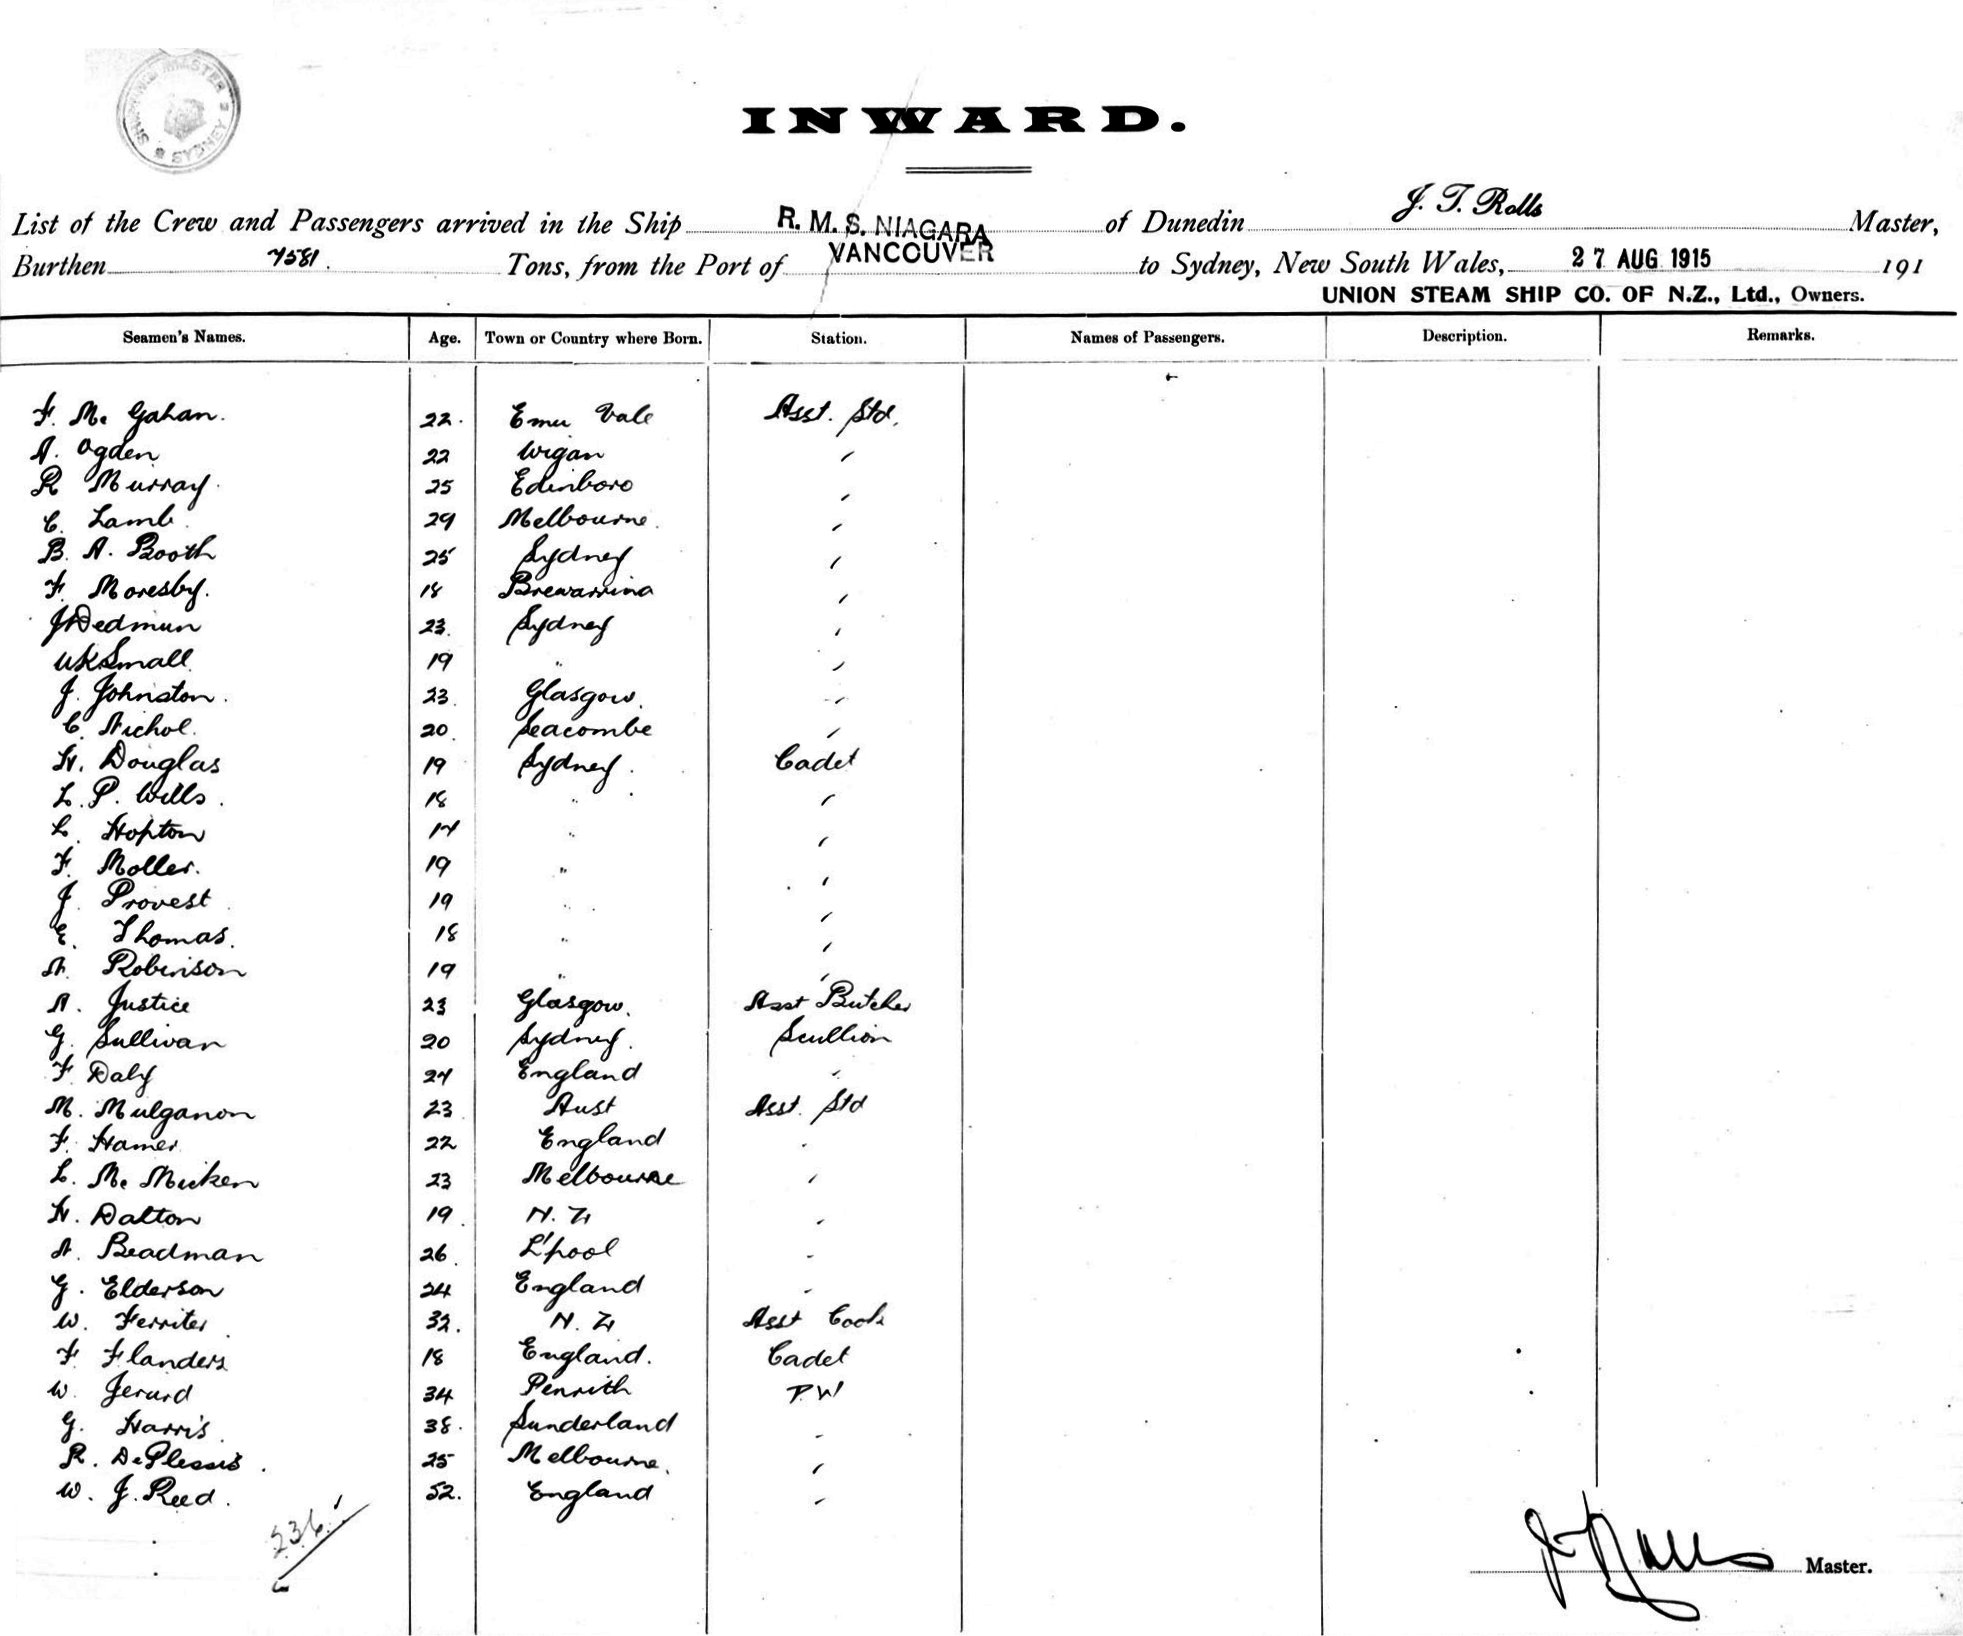 SHIPPING MASTER SYDNEY
INWARD.
List of the Crew and Passengers arrived in the Ship R. M. S. NIAGARA of Dunedin J. T. Rolls Master,
Burthen 7581. Tons, from the Port of VANCOUVER to Sydney, New South Wales, 27 AUG 1915 191
UNION STEAM SHIP CO. OF N.Z., Ltd., Owners.
Seamen's Names. Age. Town or Country where Born. Station. Names of Passengers. Description. Remarks.
F. Mc Gahan. 22. Emu Vale Asst. Std.
A. Ogden 22 Wigan "
R Murray. 25 Edinboro "
C. Lamb. 29 Melbourne. "
B. A. Booth 25 Sydney "
F. Moresby. 18 Brewarrina "
J Dedmun 23. Sydney "
Small 19 " "
J. Johnston. 23. Glasgow. "
C. Nichol. 20. Seacombe "
H. Douglas 19 Sydney. Cadet
L. P. Wills. 18 " "
L. Hopton 17 " "
F. Moller. 19 " "
J. Provest 19 " "
E. Thomas. 18 " "
A. Robinson 19 " "
A. Justice 23 Glasgow. Asst Butcher
G. Sullivan 20 Sydney. Scullion
F. Daly 24 England "
M. Mulganon 23. Aust Asst. Std
F. Hamer 22 England "
L. Mc Micken 23 Melbourne "
H. Dalton 19. N. Z "
A. Beadman 26. L'pool "
G. Elderson 24 England "
W. Ferriter 32. N. Z Asst Cook
F. Flanders 18 England. Cadet
W. Jerurd 34 Penrith P. W
G. Harris 38. Sunderland "
R. De Plessis. 25 Melbourne. "
W. J. Reed. 52. England "
236
J T Rolls Master.